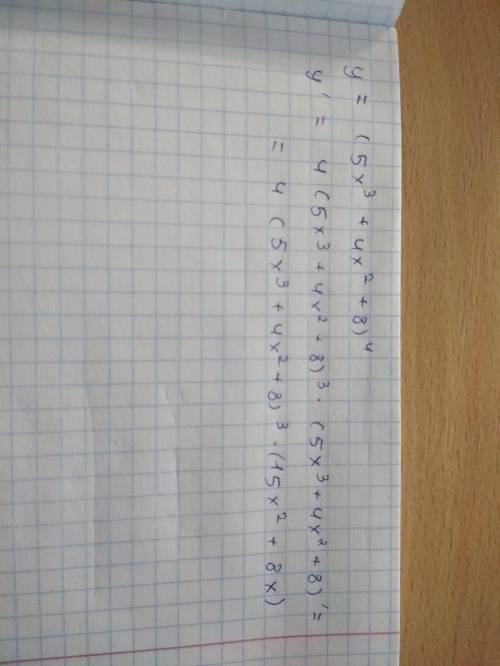 y = (5x³ + 4x² + 8)⁴
y' = 4 (5x³ + 4x² + 8)³ · (5x³ + 4x² + 8)' =
= 4 (5x³ + 4x² + 8)³ · (15x² + 8x)